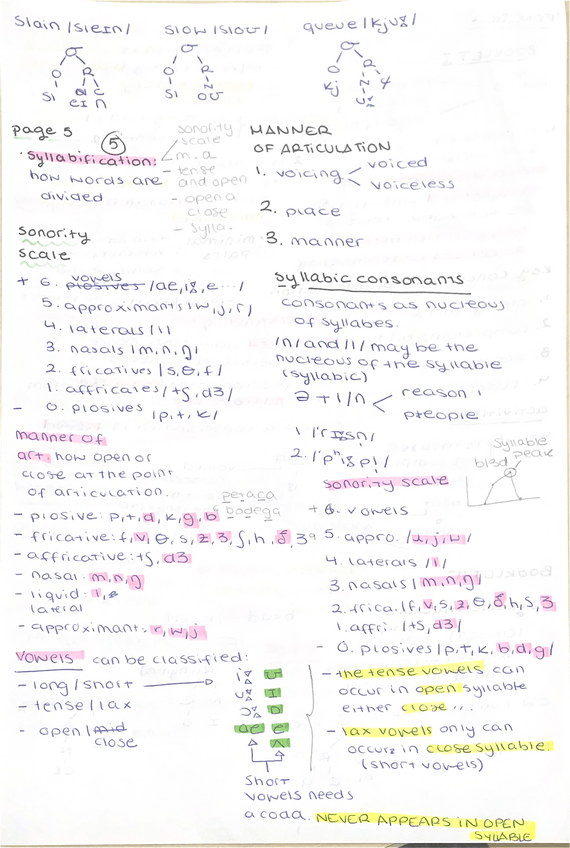 slain /sleɪn/   slow /sloʊ/   queue /kju:/
σ   σ   σ
O R   O R   O R
N C   N   N
sl eɪ n   sl oʊ   kj u:
page 5
5
sonority scale
m.a
tense and open
open a close
sylla.
Syllabification:
how words are
divided
MANNER
OF ARTICULATION
1. voicing < voiced
voiceless
2. place
3. manner
sonority
scale
+ 6. plosives vowels /ae, i:, e .../
5. approximants /w, j, r/
4. laterals /l/
3. nasals /m, n, ŋ/
2. fricatives /s, θ, f/
1. affricates /tʃ, dʒ/
- 0. plosives /p, t, k/
syllabic consonants
consonants as nucleous
of syllabes.
/n/ and /l/ may be the
nucleous of the syllable
(syllabic)
ə + l/n < reason
pteople
1. /'ri:sn̩/
2. /'pʰi:pl/
manner of
art: how open or
close at the point
of articulation.
peraca
bodega
- plosive: p, t, d, k, g, b
- fricative: f, v, θ, s, z, ʒ, ʃ, h, ð, ʒ
- affricative: tʃ, dʒ
- nasal: m, n, ŋ
- liquid: l,
lateral
- approximant: r, w, j
Syllable
peak
sonority scale
+ 6. vowels
5. appro. /u, j, w/
4. laterals /l/
3. nasals /m, n, ŋ/
2. frica. /f, v, s, z, θ, ð, h, s, ʒ
1. affri. /tʃ, dʒ/
- 0. plosives /p, t, k, b, d, g/
vowels can be classified:
- long / short
- tense / lax
- open / mid
close
i: ʊ
u: ɪ
ɔ: ɒ
ae e
ʌ
short
vowels needs
a coda. NEVER APPEARS IN OPEN
SYLLABLE
- the tense vowels can
occur in open syllable
either close "..
- lax vowels only can
occurs in close syllable.
(short vowels)